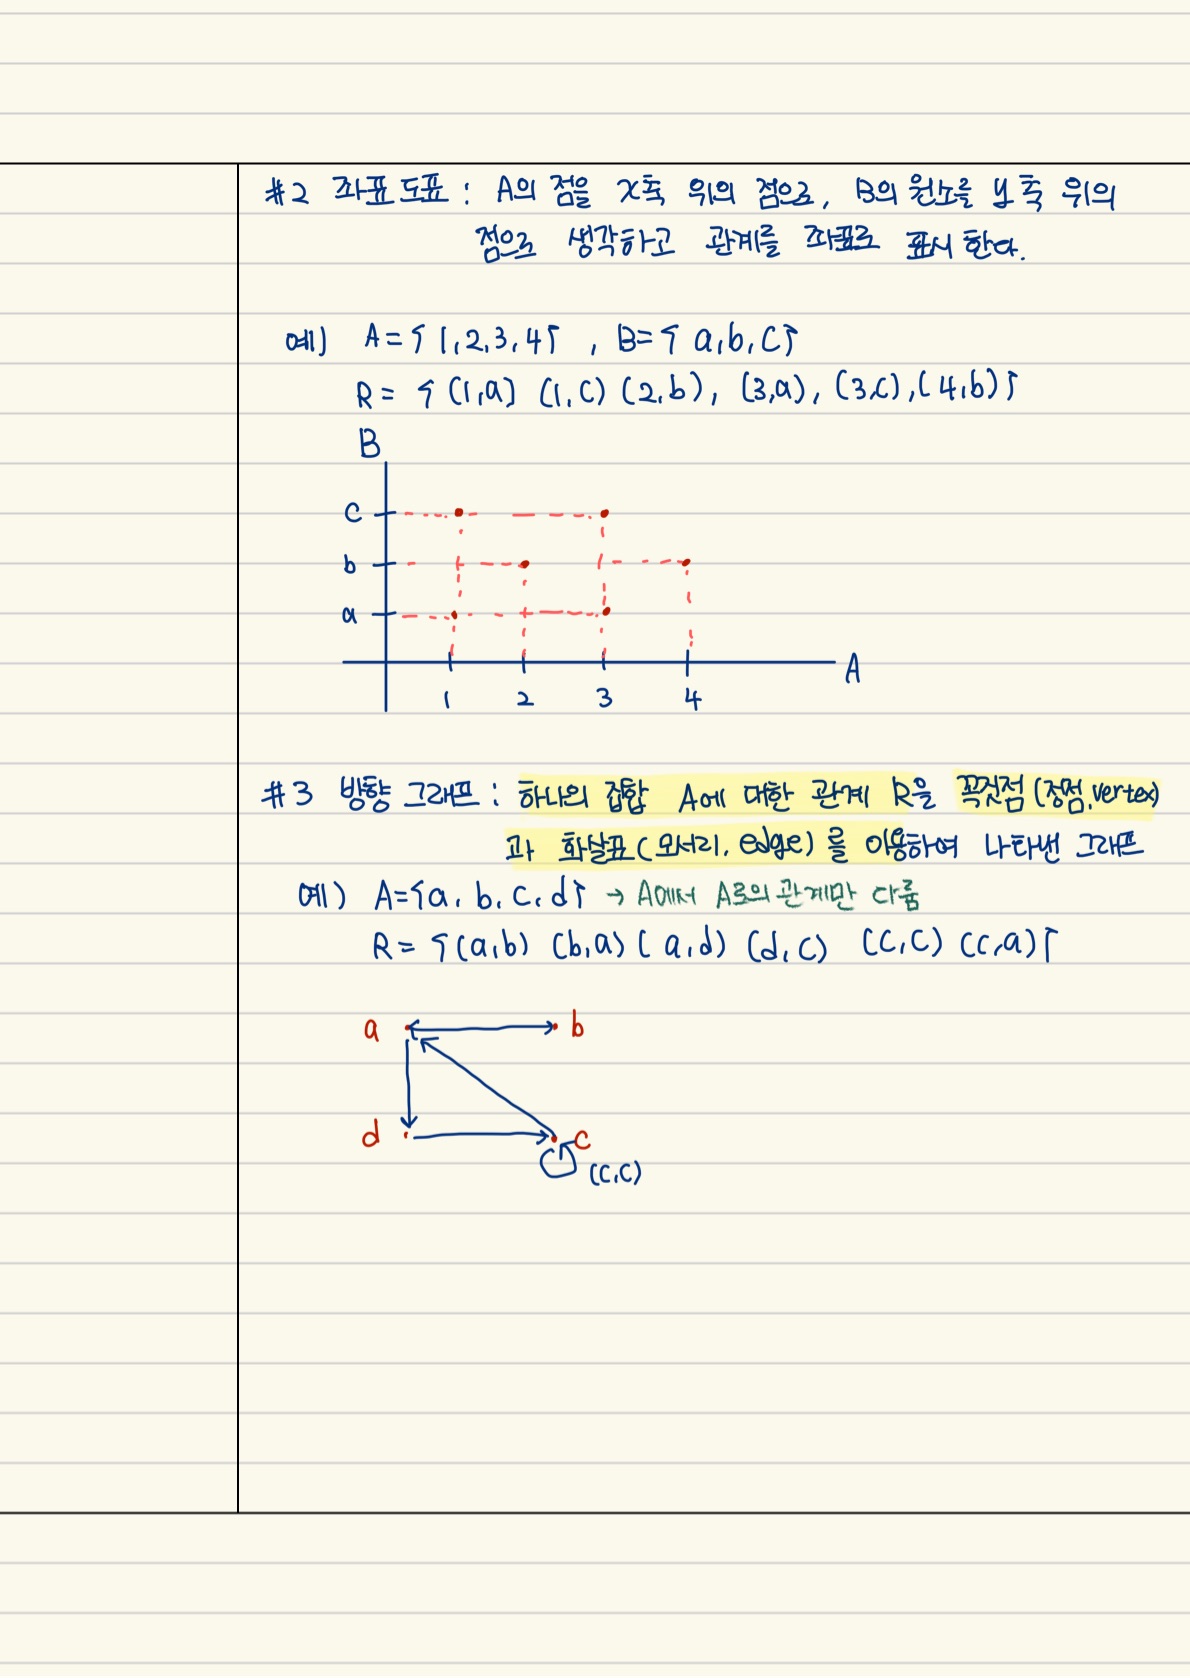 #2 좌표 도표 : A의 점을 X축 위의 점으로, B의 원소를 y축 위의
점으로 생각하고 관계를 좌표로 표시한다.
예) A = { 1, 2, 3, 4 } , B = { a, b, c }
R = { (1,a] (1,c) (2,b), (3,a), (3,c), (4,b) }
B
c
b
a
A
1 2 3 4
#3 방향 그래프 : 하나의 집합 A에 대한 관계 R을 꼭짓점 (정점, vertex)
과 화살표 (모서리, edge) 를 이용하여 나타낸 그래프
예) A = { a, b, c, d } → A에서 A로의 관계만 다룸
R = { (a,b) (b,a) (a,d) (d,c) (c,c) (c,a) }
a b
d c
(c,c)